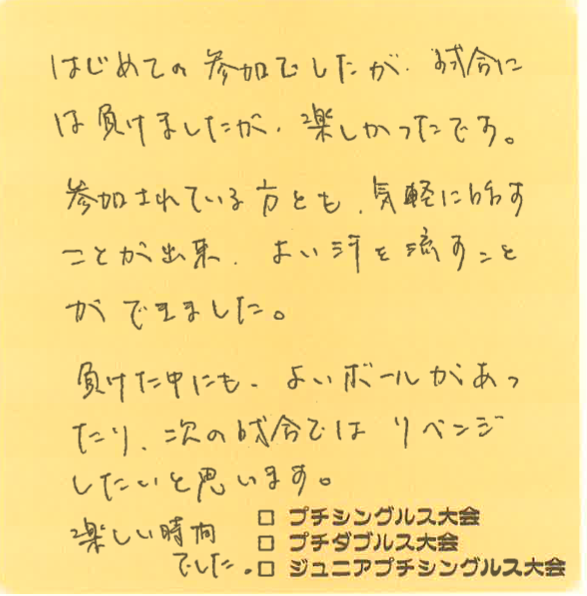 はじめての参加でしたが、試合に
は負けましたが、楽しかったです。
参加されている方とも、気軽に話す
ことが出来、よい汗を流すこと
ができました。
負けた中にも、よいボールがあっ
たり、次の試合では リベンジ
したいと思います。
楽しい時間
でした。
□ プチシングルス大会
□ プチダブルス大会
□ ジュニアプチシングルス大会